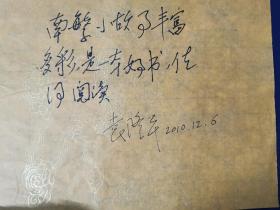 南繁小故事丰富
多彩,是一本好书,值
得阅读
袁隆平 2010.12.6